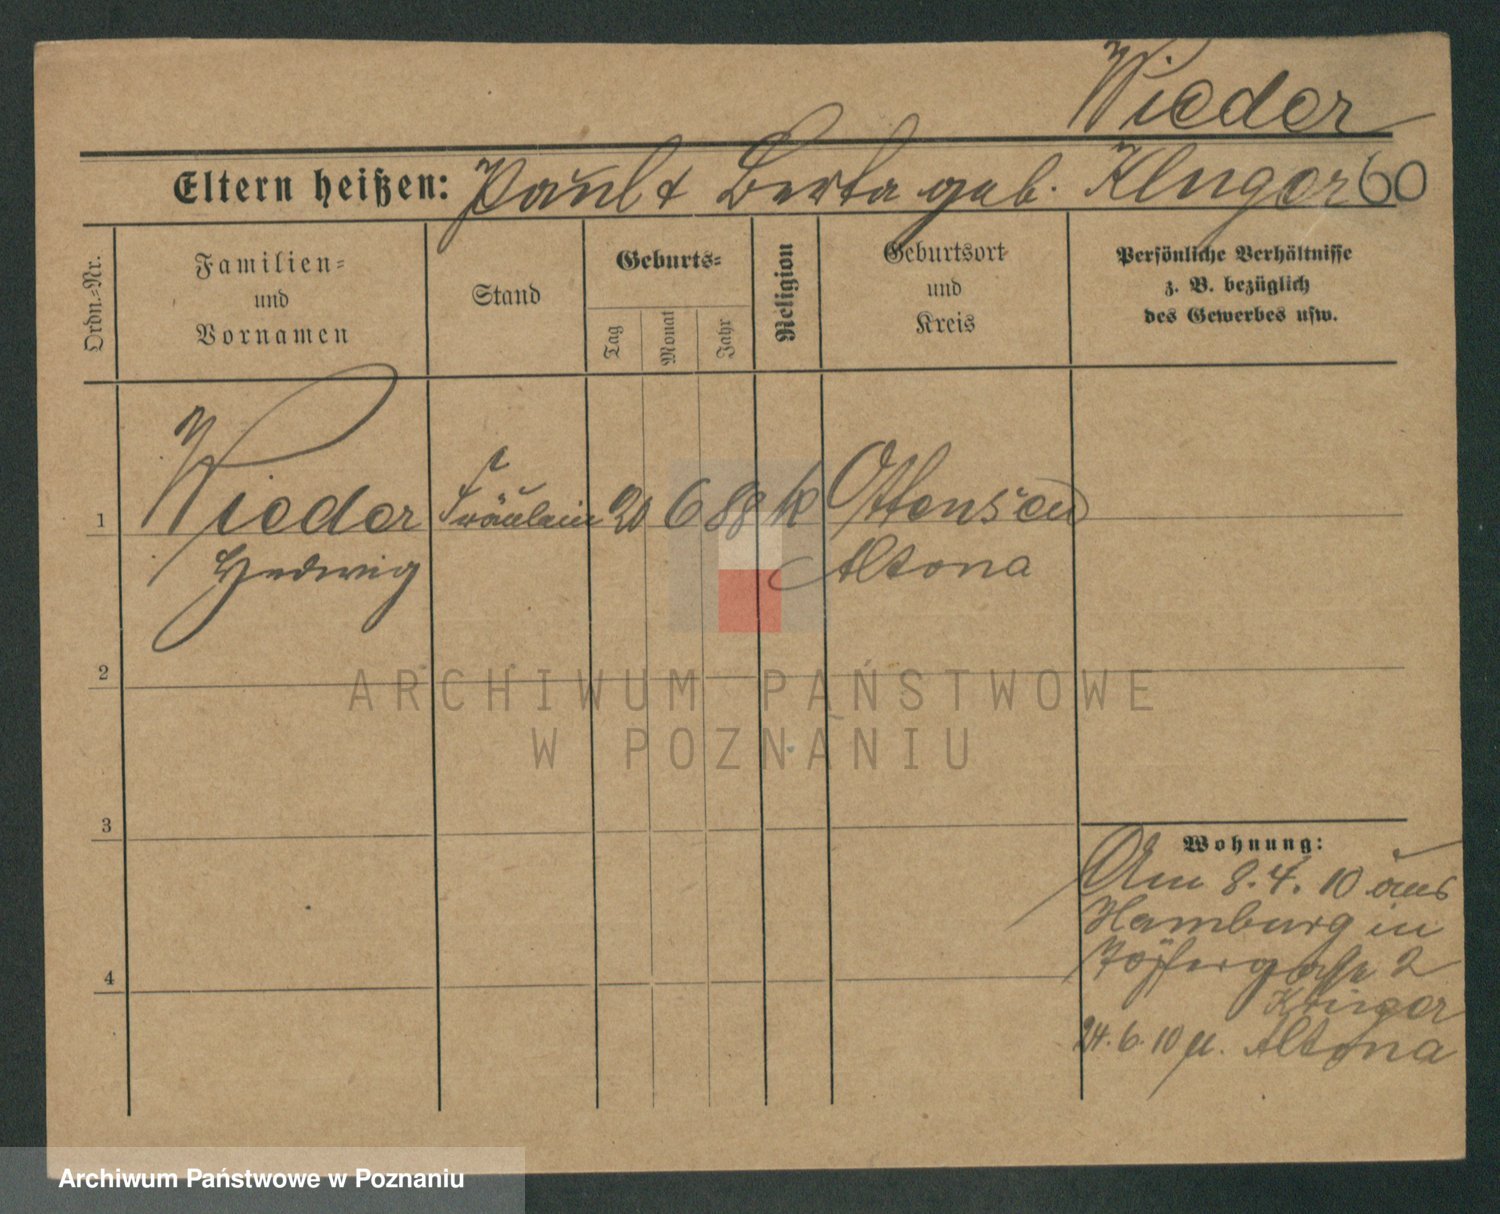 Wieder
Eltern heißen: Paul & Berta geb. Kluger 60
Ordn.-Nr.
Familien-
und
Vornamen
Stand
Geburts-
Tag
Monat
Jahr
Religion
Geburtsort
und
Kreis
Persönliche Verhältnisse
z. B. bezüglich
des Gewerbes usw.
1 Wieder Fräulein 20 6 88 k Ottensen
Hedwig Altona
2
3
4
Wohnung:
Am 8.4.10 aus
Hamburg in
Töpfergasse 2
Kluger
24.6.10 n. Altona
ARCHIWUM PAŃSTWOWE
W POZNANIU
Archiwum Państwowe w Poznaniu